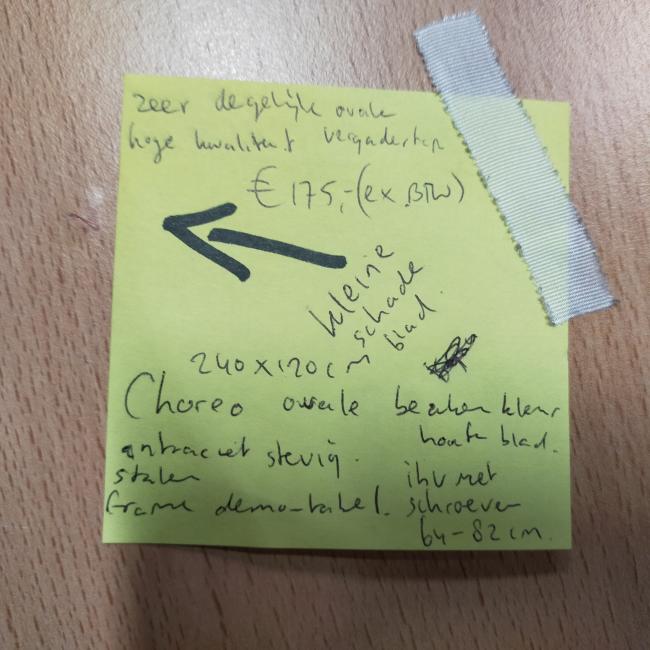 zeer degelijk ovale
hoge kwaliteit vergadertap
€ 175,-(ex.BTW)
kleine
schade
blad.
240x120cm
Choreo ovale beuken kleur
houten blad.
antraciet stevig.
stalen
frame demo-tabel.
ihv met
schroeven
64-82cm.